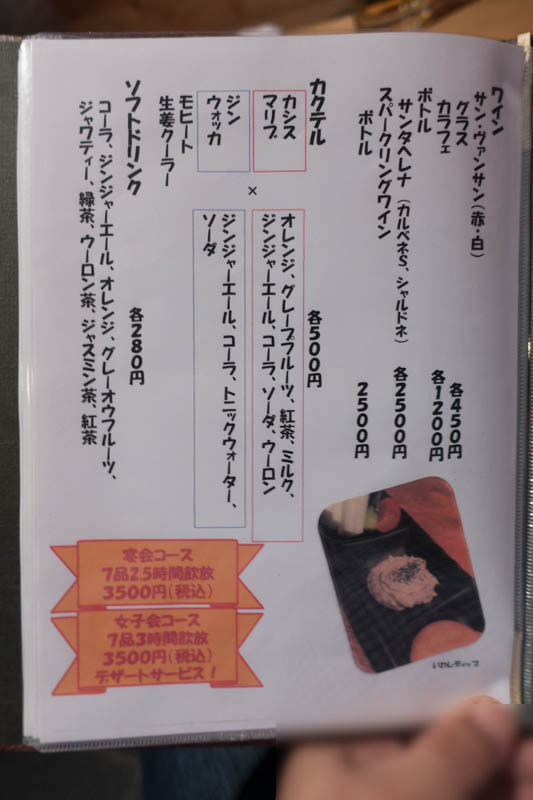 ワイン
サン・ヴァンサン(赤・白)
グラス
各450円
カラフェ
各1200円
ボトル
サンタヘレナ (カルベネS、シャルドネ)
各2500円
スパークリングワイン
ボトル
2500円
カクテル
各500円
カシス
マリブ
×
オレンジ、グレープフルーツ、紅茶、ミルク、
ジンジャーエール、コーラ、ソーダ、ウーロン
ジン
ウォッカ
ジンジャーエール、コーラ、トニックウォーター、
ソーダ
モヒート
生姜クーラー
ソフトドリンク
各280円
コーラ、ジンジャーエール、オレンジ、グレーオウフルーツ、
ジャワティー、緑茶、ウーロン茶、ジャスミン茶、紅茶
宴会コース
7品2.5時間飲放
3500円(税込)
女子会コース
7品3時間飲放
3500円(税込)
デザートサービス!
いわしディップ